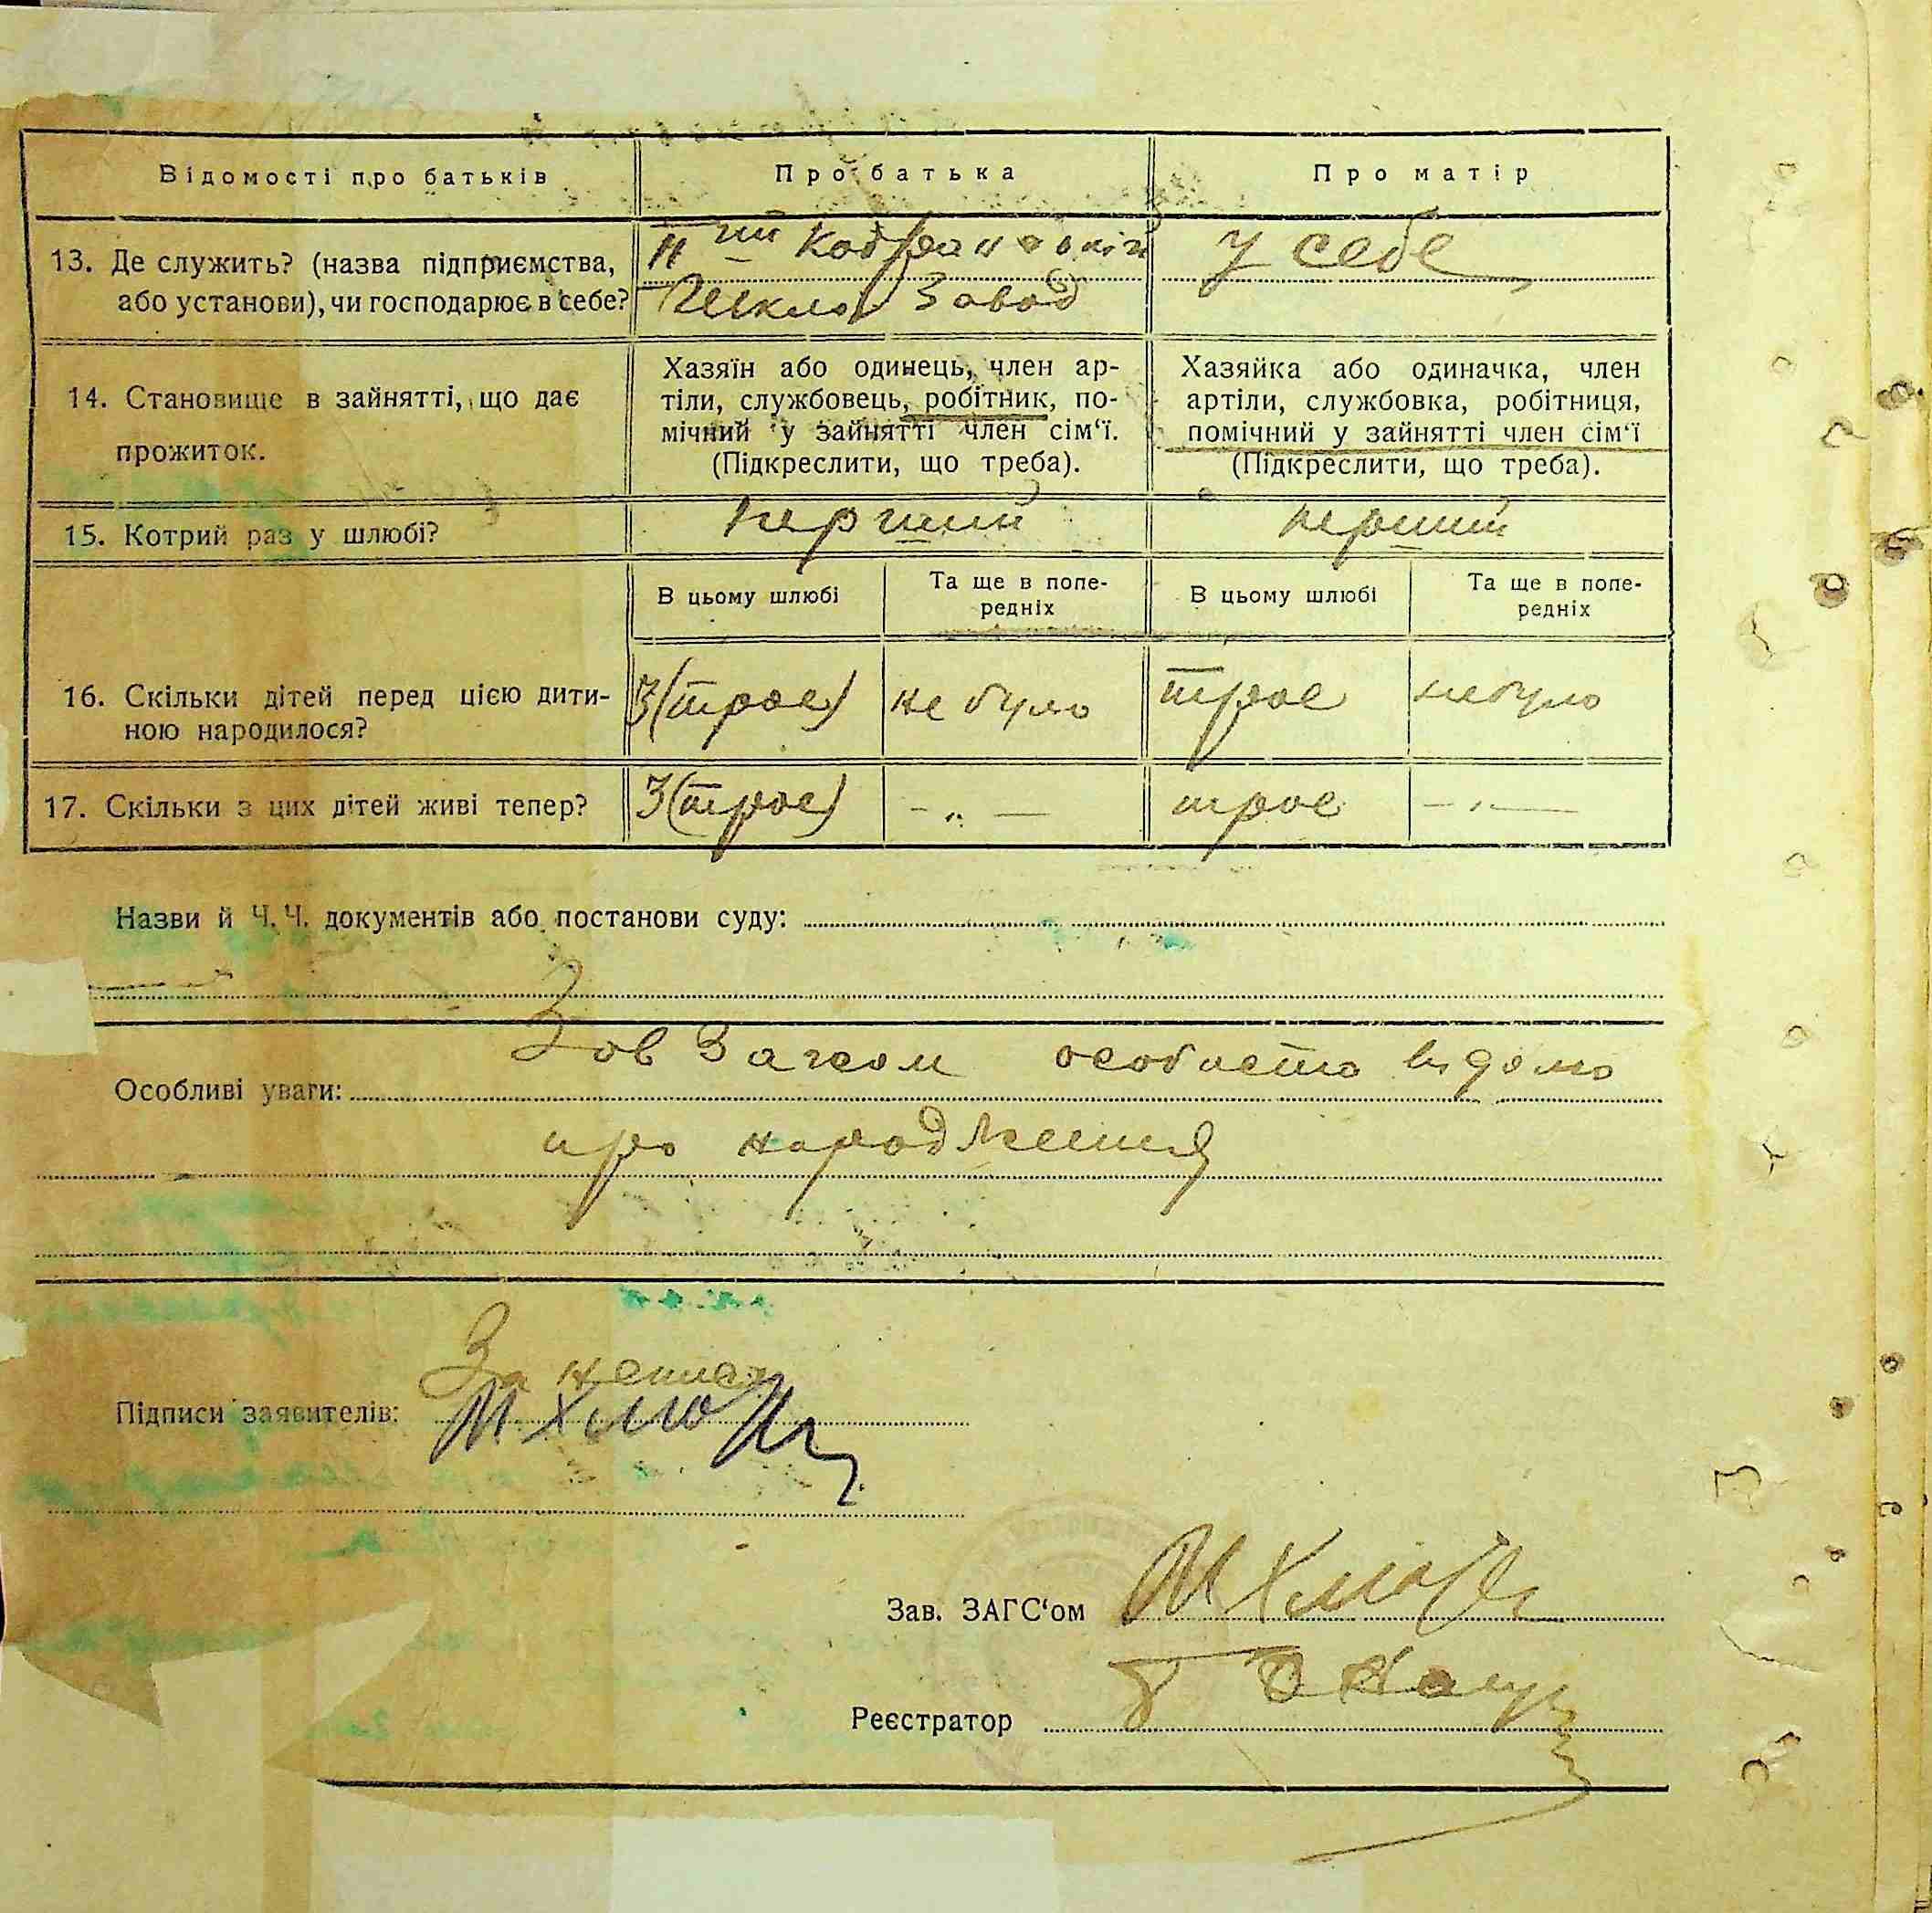 Відомості про батьків Про батька Про матір
13. Де служить? (назва підприємства, або установи), чи господарює в себе?
Завод
у себе
14. Становище в зайнятті, що дає прожиток.
Хазяїн або одинець, член ар-
тіли, службовець, робітник, по-
мічний у зайнятті член сім‘ї.
(Підкреслити, що треба).
Хазяйка або одиначка, член
артіли, службовка, робітниця,
помічний у зайнятті член сім‘ї
(Підкреслити, що треба).
15. Котрий раз у шлюбі? перший перший
В цьому шлюбі Та ще в попе-
редніх В цьому шлюбі Та ще в попе-
редніх
16. Скільки дітей перед цією дити-
ною народилося? 3 (троє) не було троє не було
17. Скільки з цих дітей живі тепер? 3 (троє) — „ — троє — „ —
Назви й Ч.Ч. документів або постанови суду:
Особливі уваги: Зав Загсом особисто відомо
про народження
За неписм
Підписи заявителів:
Зав. ЗАГС‘ом
Реєстратор